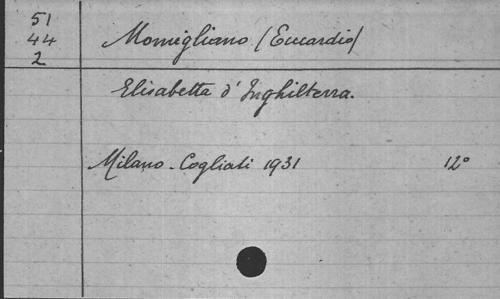 51
44
2
Momigliano (Eucardio)
Elisabetta d'Inghilterra.
Milano - Cogliati 1931 12°